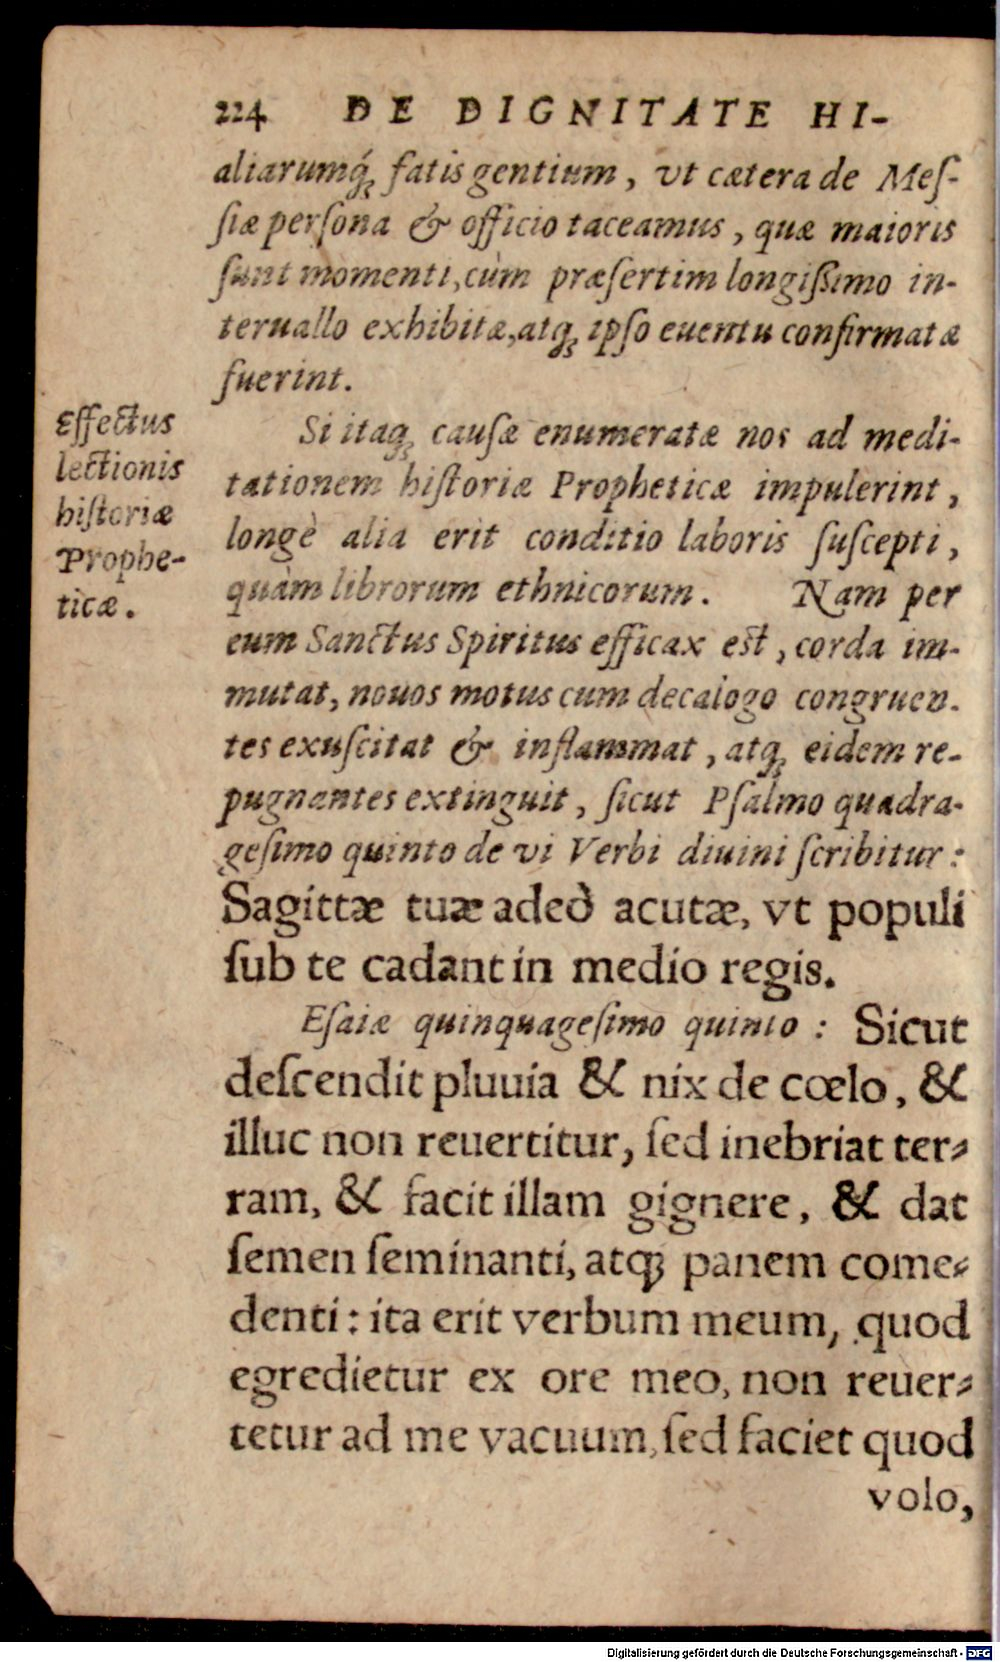 224 DE DIGNITATE HI-
aliarumq́ꝫ fatis gentium, vt cætera de Meſ-
ſiæ perſona & officio taceamus, quæ maioris
ſunt momenti, cùm præſertim longißimo in-
teruallo exhibitæ, atqꝫ ipſo euentu confirmatæ
fuerint.
Effectus
lectionis
hiſtoriæ
Prophe-
ticæ.
Si itaqꝫ cauſæ enumeratæ nos ad medi-
tationem hiſtoriæ Propheticæ impulerint,
longè alia erit conditio laboris ſuſcepti,
quàm librorum ethnicorum. Nam per
eum Sanctus Spiritus efficax est, corda im-
mutat, nouos motus cum decalogo congruen-
tes exuſcitat & inflammat, atqꝫ eidem re-
pugnantes extinguit, ſicut Pſalmo quadra-
geſimo quinto de vi Verbi diuini ſcribitur:
Sagittæ tuæ adeò acutæ, vt populi
ſub te cadant in medio regis.
Eſaiæ quinquageſimo quinto: Sicut
deſcendit pluuia & nix de cœlo, &
illuc non reuertitur, ſed inebriat ter-
ram, & facit illam gignere, & dat
ſemen ſeminanti, atqꝫ panem come-
denti: ita erit verbum meum, quod
egredietur ex ore meo, non reuer-
tetur ad me vacuum, ſed faciet quod
volo,
Digitalisierung gefördert durch die Deutsche Forschungsgemeinschaft - DFG